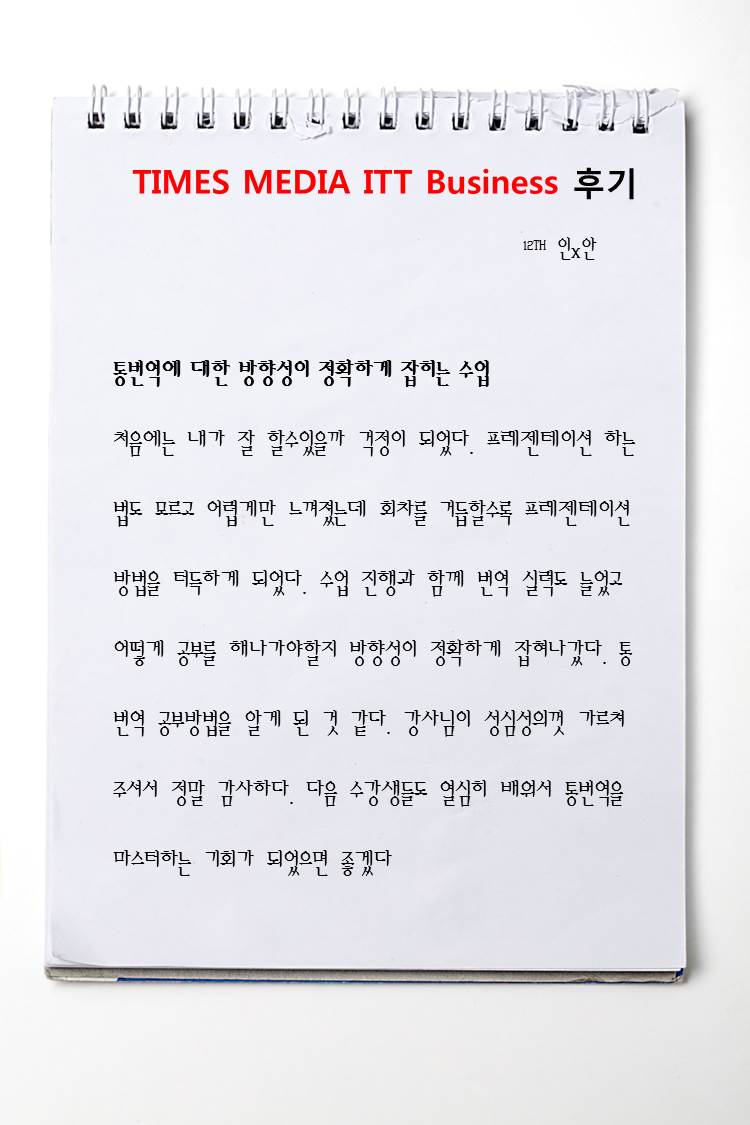 TIMES MEDIA ITT Business 후기
12TH 인x안
통번역에 대한 방향성이 정확하게 잡히는 수업
처음에는 내가 잘 할수있을까 걱정이 되었다. 프레젠테이션 하는
법도 모르고 어렵게만 느껴졌는데 회차를 거듭할수록 프레젠테이션
방법을 터득하게 되었다. 수업 진행과 함께 번역 실력도 늘었고
어떻게 공부를 해나가야할지 방향성이 정확하게 잡혀나갔다. 통
번역 공부방법을 알게 된 것 같다. 강사님이 성심성의껏 가르쳐
주셔서 정말 감사하다. 다음 수강생들도 열심히 배워서 통번역을
마스터하는 기회가 되었으면 좋겠다